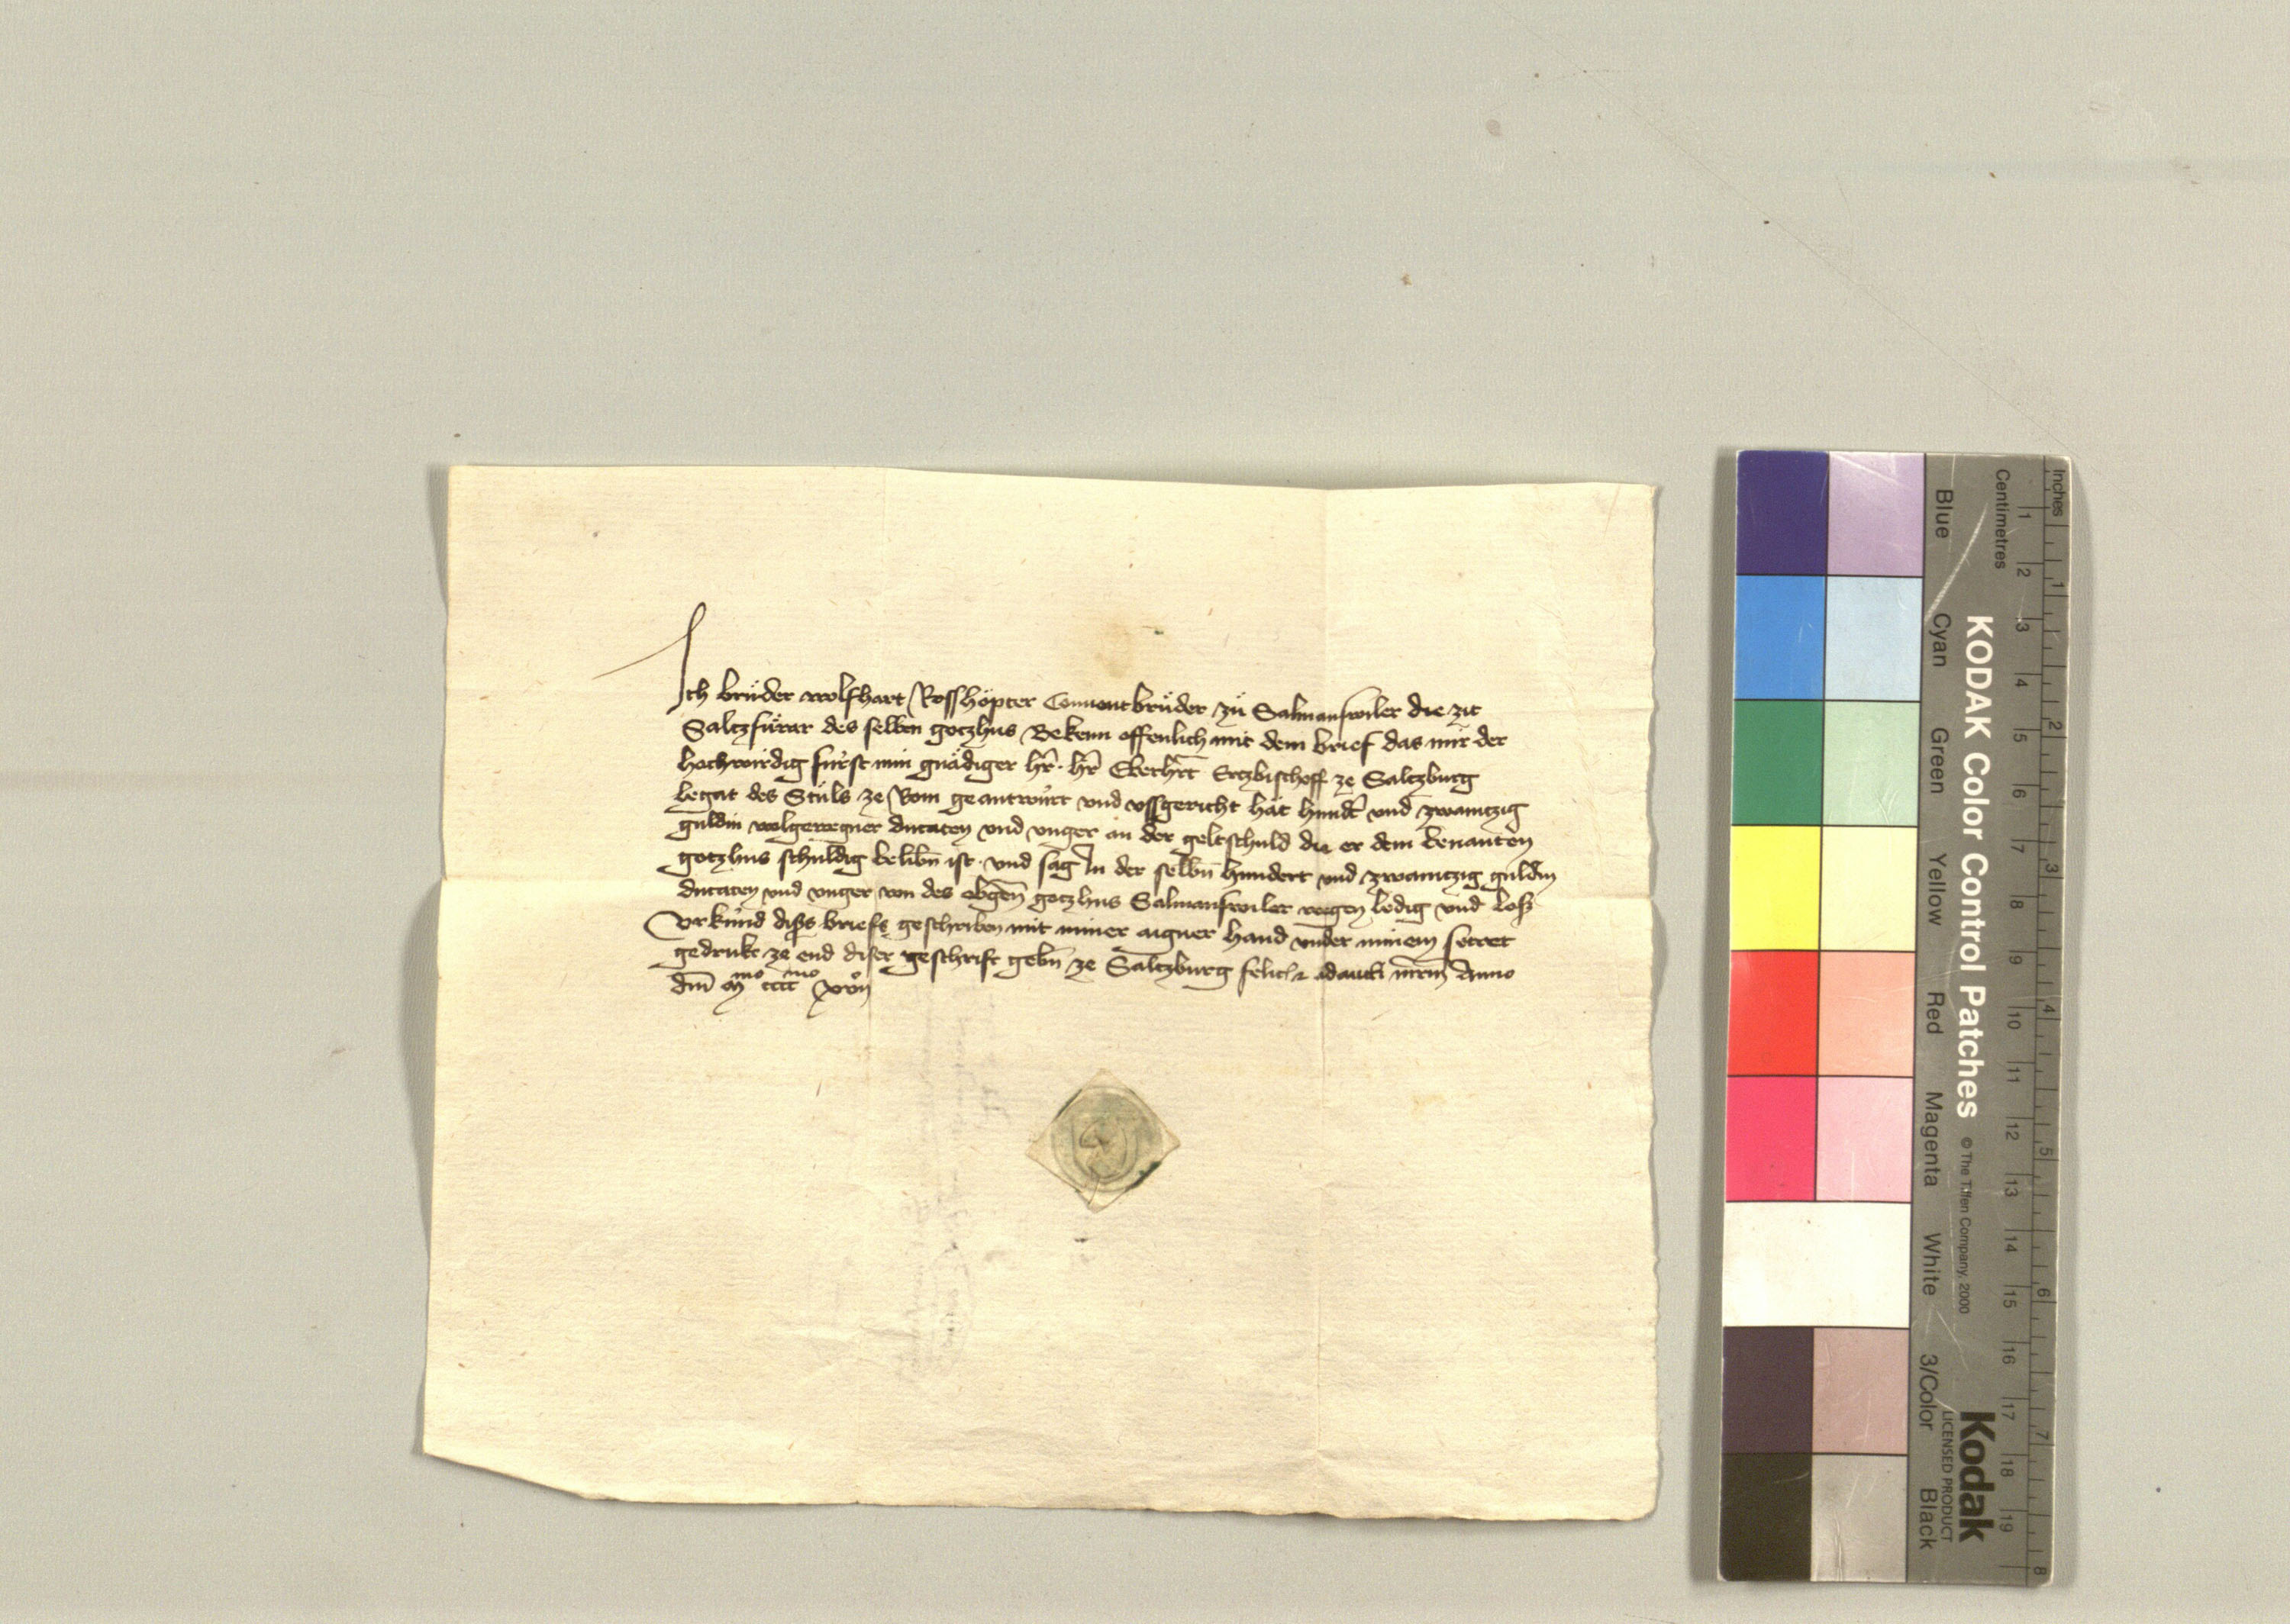 Ich brůder wolfhart Rosshöpter Conuentbrůder zů Salmanswiler die zit
Saltzfůrer des selben gotzhus Bekenn offenlich mit dem brief das mir der
hochwirdig fürst min gnädiger hr̄ · hr̄ Eberhr̄t Ertzbischoff ze Saltzburg
legat des Stůls ze Rom geantwürt und ussgericht hät hundt̄ und zwaintzig
guldin wolgewegner ducaten und unger an der geltschuld die er dem benanten
gotzhus schuldig belibn̄ ist · und sag In der selbn̄ hundert und zwaintzig guldin
ducaten und unger von des obgen̄ gotzhus Salmanswiler wegen ledig und loß
Urkünd diss briefs geschriben mit miner aigner hand under minem secret
gedrukt ze end diser geschrift gebn̄ ze Saltzburg felicis adaucti mr̄m Anno
dm̄ mᵐᵒ ccccᵐᵒ
KODAK Color Control Patches © The Tiffen Company, 2000 Kodak
LICENSED PRODUCT
Inches 1 2 3 4 5 6 7 8
Centimetres 1 2 3 4 5 6 7 8 9 10 11 12 13 14 15 16 17 18 19
Blue Cyan Green Yellow Red Magenta White 3/Color Black